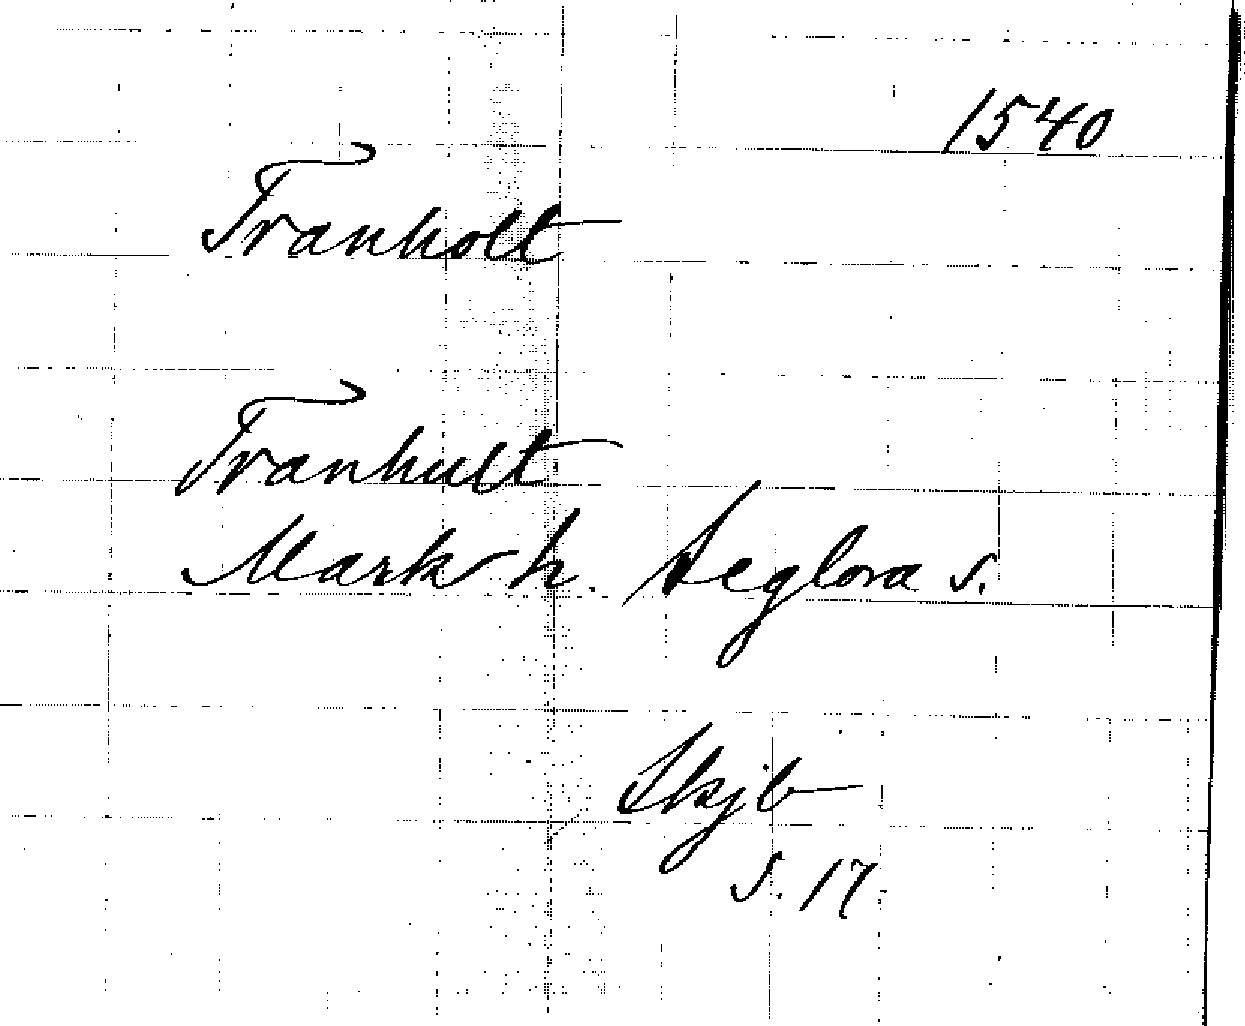 1540
Tranholt
Tranhult
Mark h. Seglora s.
Skjb
S. 17.